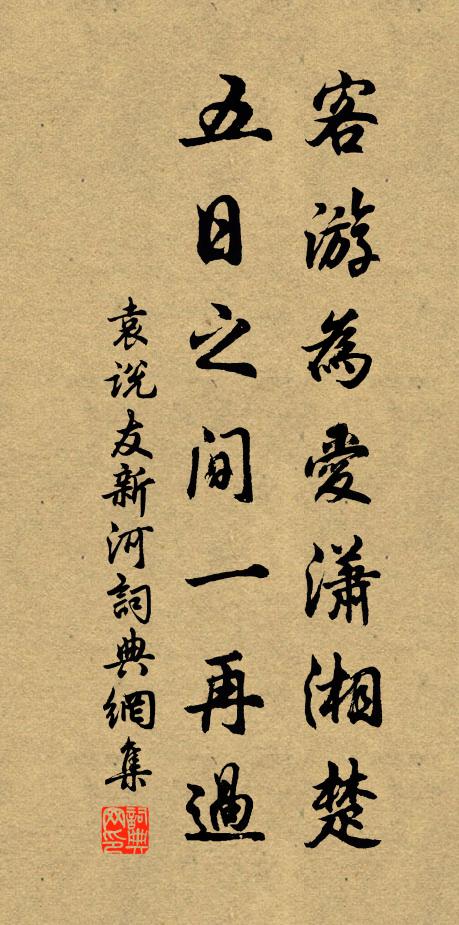 客游為愛瀟湘楚
五日之間一再過
袁说友新河詞典網集
詞典网印